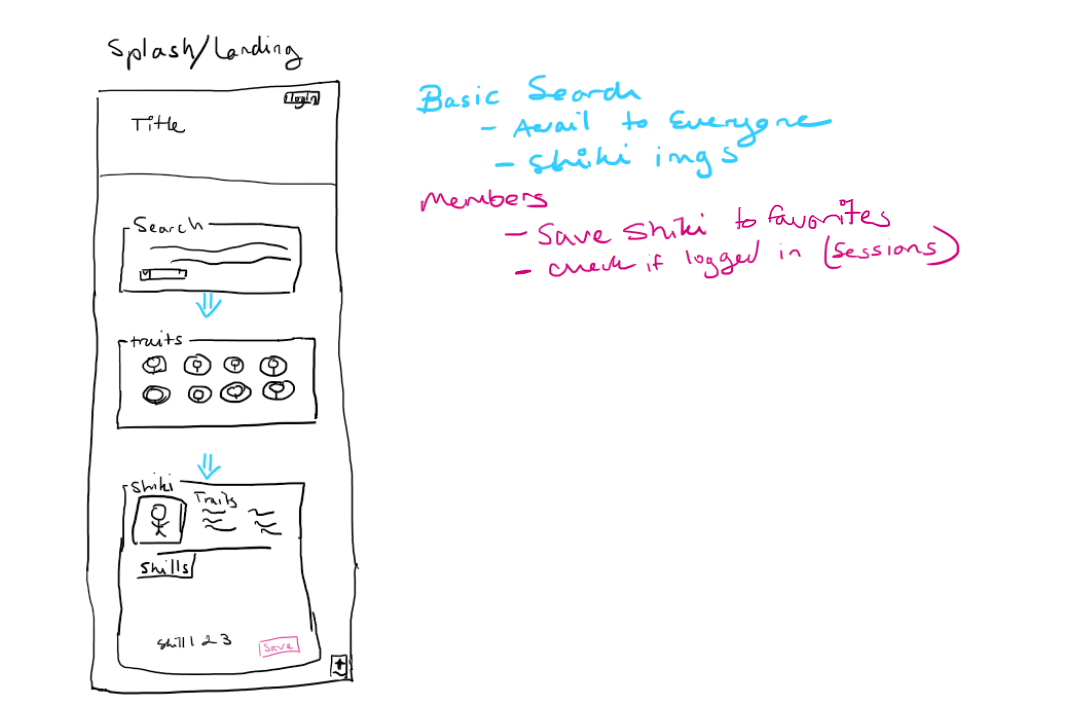 Splash/Landing
login
Title
Search
traits
Shiki
Traits
Skills
Skill 1 2 3
Save
Basic Search
- Avail to Everyone
- Shiki imgs
Members
- Save Shiki to favorites
- check if logged in (sessions)